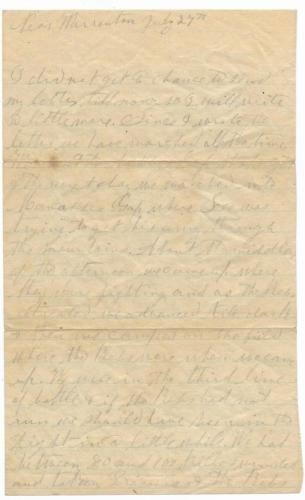 Near Warrenton July 27th
I did not get a chance to send
my letter till now so I will write
a little more. Since I wrote the
letter we have marched all the time
The next day we marched into
Manassas Gap where Lee was
trying to get his army through
the mountains. About the middle
of the afternoon we came up where
they were fighting and as the Rebs
retreated we advanced
and camped on the field
where the Rebs were when we came
up. We were in the third line
of battle & if the Rebs had not
run we should have been in the
fight in a little while. We had
between 80 and 100 killed wounded
and taken prisoners. The Rebs